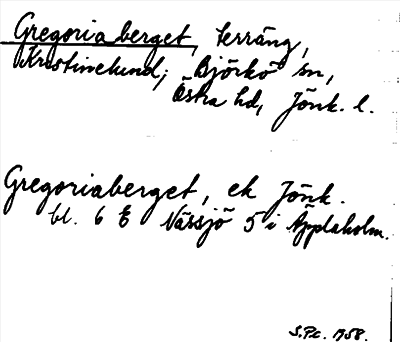 Gregoriaberget, terräng,
Kristinelund, Björkö sn,
Östra hd, Jönk. l.
Gregoriaberget, ek Jönk.
bl. 6 E Nässjö 5 i Äpplaholm.
S.Pc. 1958.